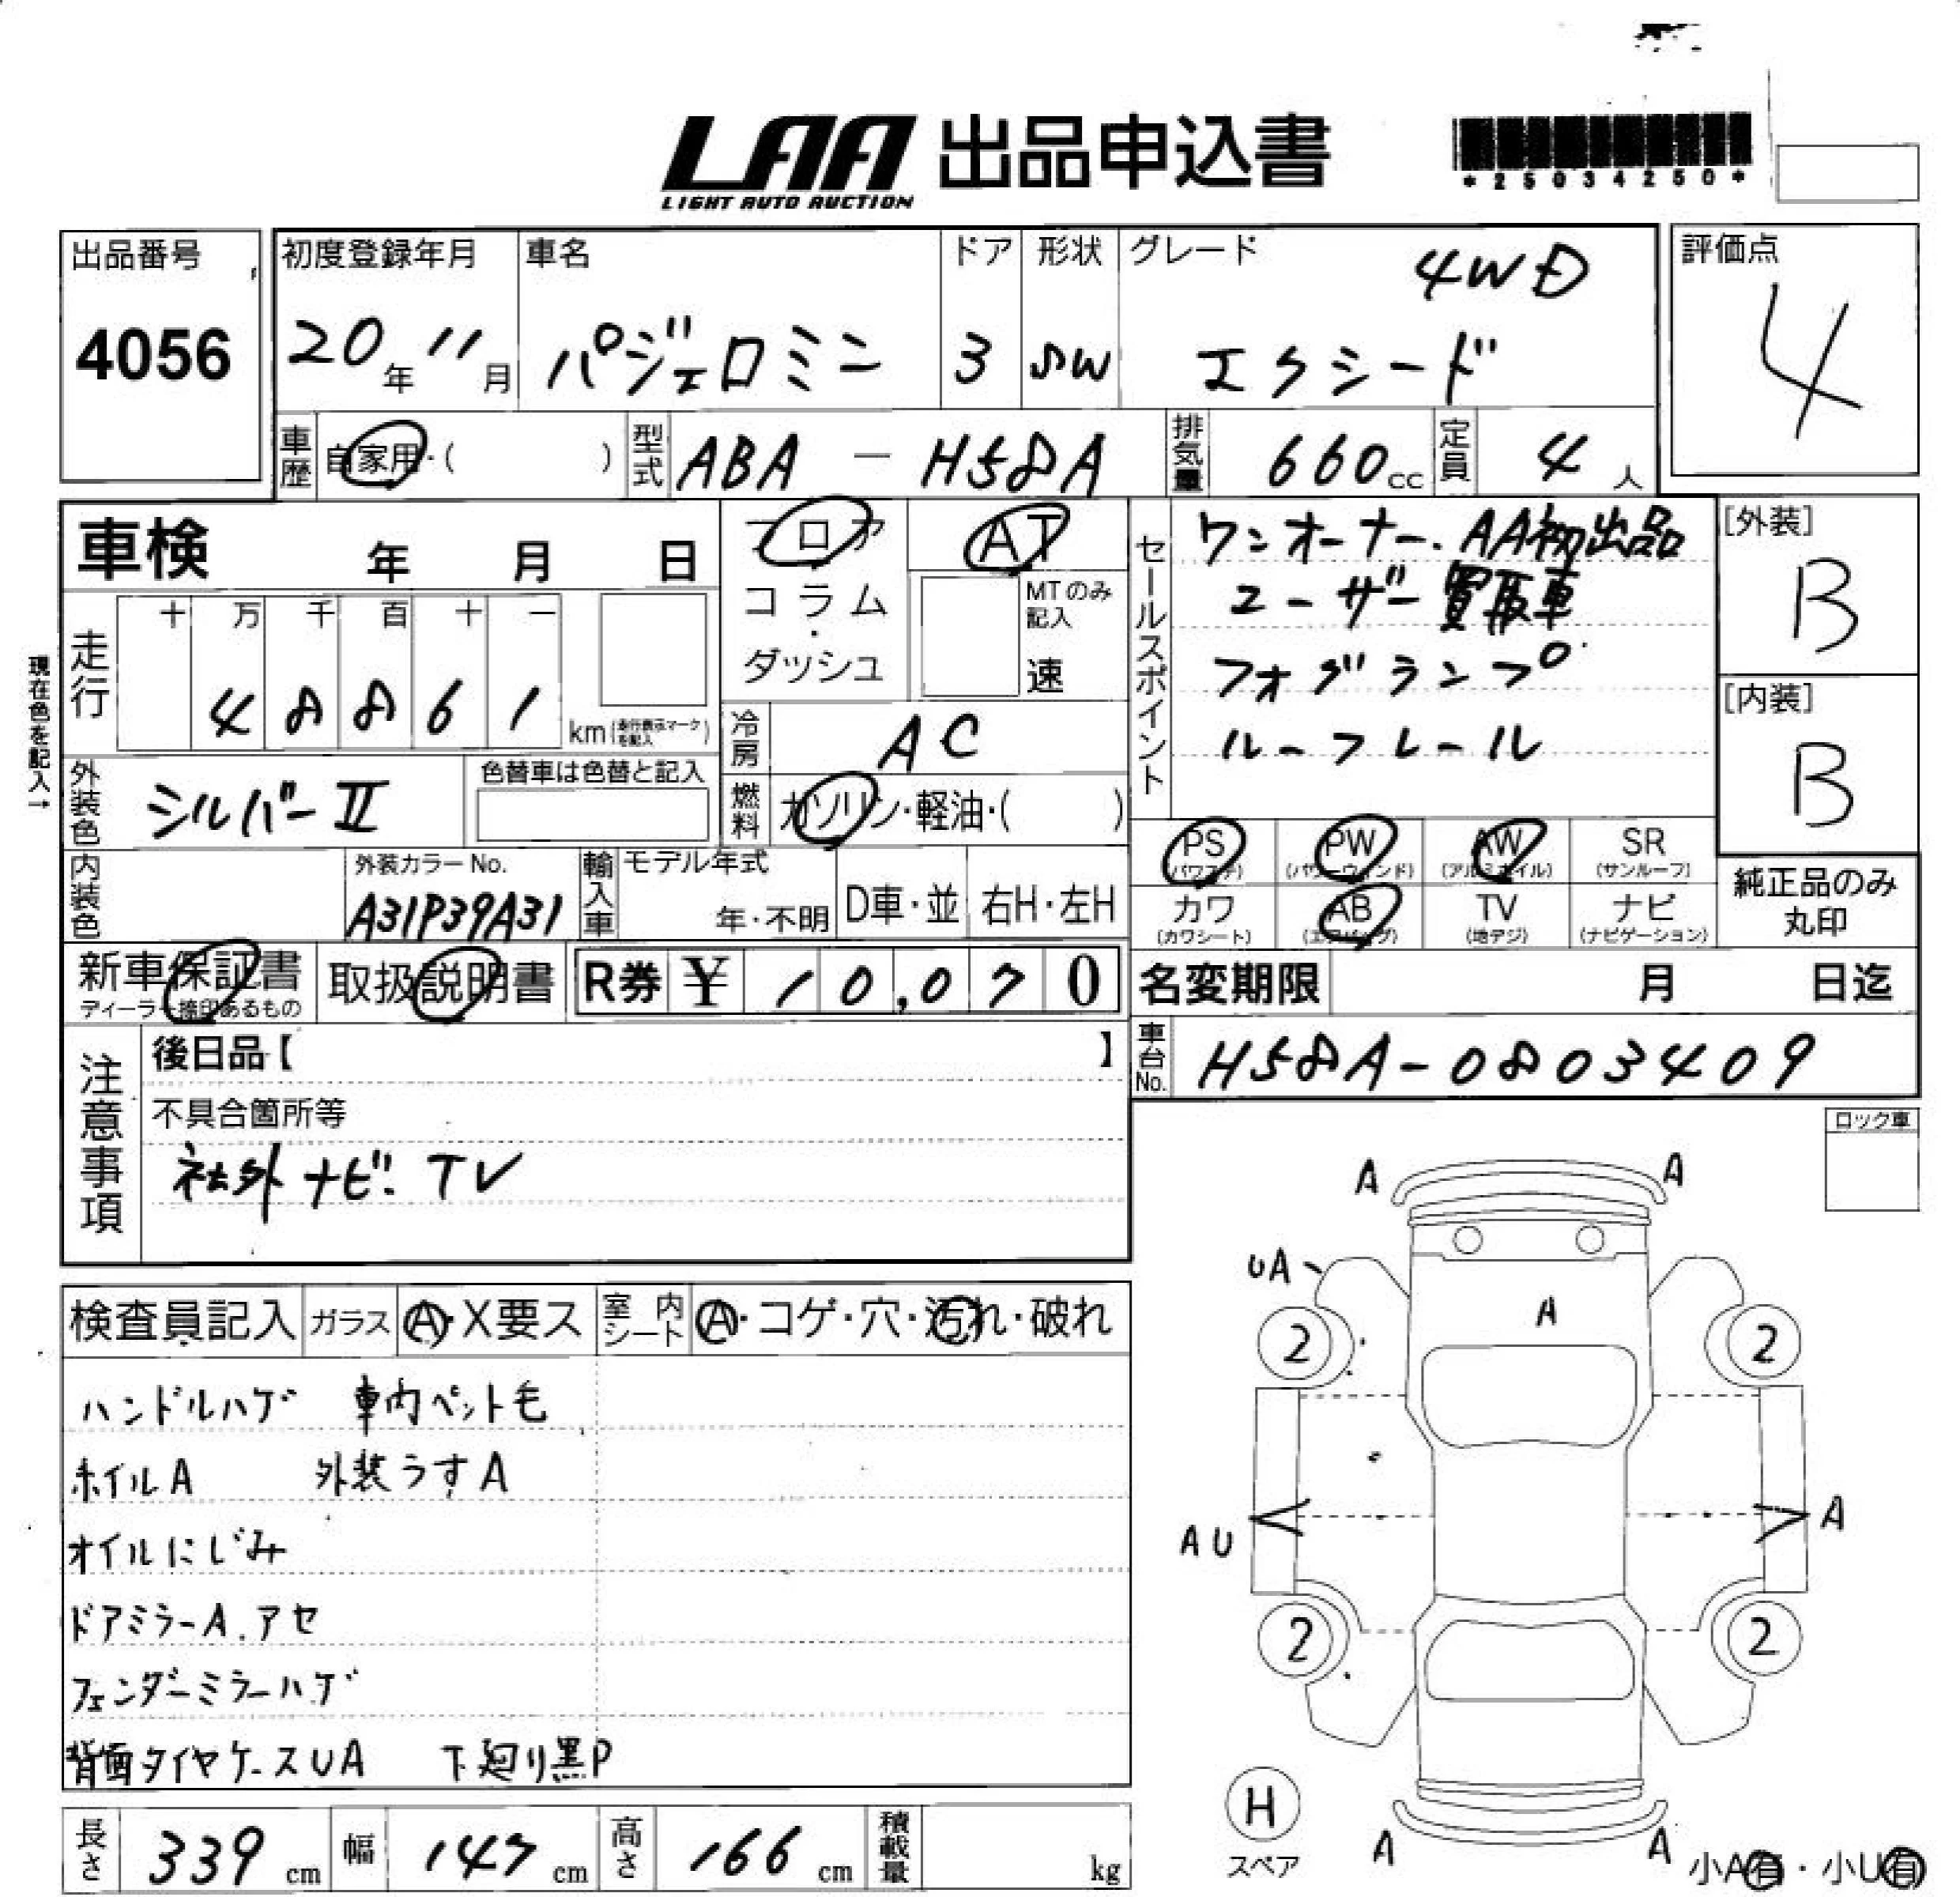 LAA 出品申込書
LIGHT AUTO AUCTION
*25034250*
出品番号
4056
初度登録年月
20年11月
車名
パジェロミニ
ドア
3
形状
SW
グレード
4WD
エクシード
評価点
4
車歴 自家用・( )
型式 ABA-H58A
排気量 660cc
定員 4人
車検 年 月 日
フロア・コラム・ダッシュ
AT
MTのみ記入
速
セールスポイント
ワンオーナー.AA初出品
ユーザー買取車
フォグランプ
ルーフレール
[外装]
B
[内装]
B
現在色を記入→
走行
十 万 千 百 十 一
4 8 8 6 1
km(走行表示マークを記入)
冷房 AC
外装色 シルバーⅡ
色替車は色替と記入
燃料 ガソリン・軽油・( )
PS (パワステ)
PW (パワーウィンド)
AW (アルミホイル)
SR (サンルーフ)
カワ (カワシート)
AB (エアバッグ)
TV (地デジ)
ナビ (ナビゲーション)
純正品のみ
丸印
内装色
外装カラーNo.
A31P39A31
輸入車
モデル年式
年・不明
D車・並
右H・左H
新車保証書
ディーラー捺印あるもの
取扱説明書
R券 ¥ 10,070
名変期限 月 日迄
車台No. H58A-0803409
注意事項
後日品【 】
不具合箇所等
社外ナビ.TV
ロック車
検査員記入
ガラス Ⓐ・X要ス
室内シート Ⓐ・コゲ・穴・汚れ・破れ
ハンドルハゲ 車内ペット毛
ホイルA 外装うすA
オイルにじみ
ドアミラーA.アセ
フェンダーミラーハゲ
背面タイヤケースUA 下廻り黒P
A A
UA
A
2 2
AU
A
2 2
H
スペア
A A
小A有・小U有
長さ 339 cm
幅 147 cm
高さ 166 cm
積載量 kg